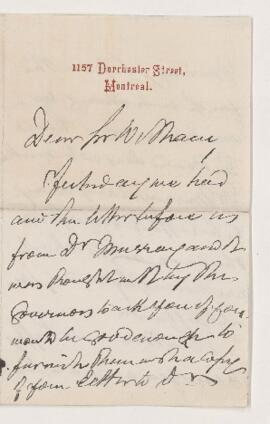 1157 Dorchester Street,
Montreal.
Dear Sir William
Yesterday we had
and the letter before us
from Dr Murray and it
was thought by the
Governors to ask you if you
would be good enough to
furnish them with a copy
of your letter to Dr